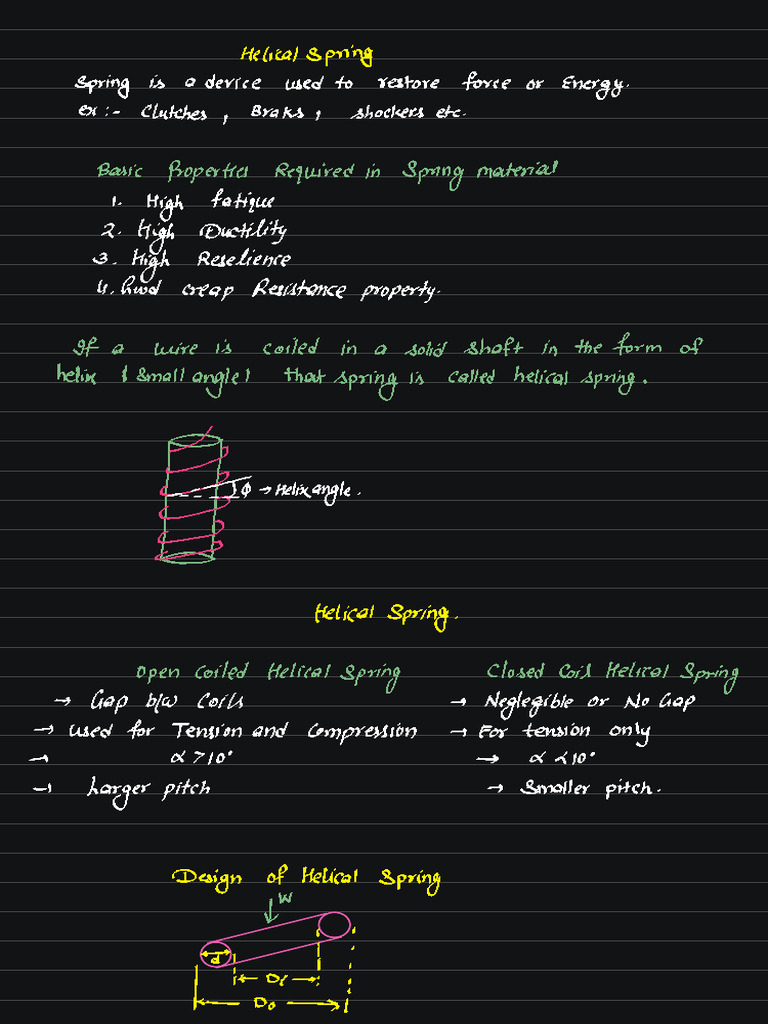 Helical Spring
Spring is a device used to restore force or Energy.
ex :- Clutches , Braks , shockers etc.
Basic Properties Required in Spring material
1. High fatique
2. High Ductility
3. High Reselience
4. creap Resistance property.
If a wire is coiled in a solid shaft in the form of
helix (small angle) that spring is called helical spring.
ϕ → Helix angle.
Helical Spring.
Open Coiled Helical Spring
→ Gap b/w Coils
→ used for Tension and Compression
→ α > 10°
→ Larger pitch
Closed Coil Helical Spring
→ Neglegible or No Gap
→ For tension only
→ α < 10°
→ Smaller pitch.
Design of Helical Spring
W
d
Di
Do